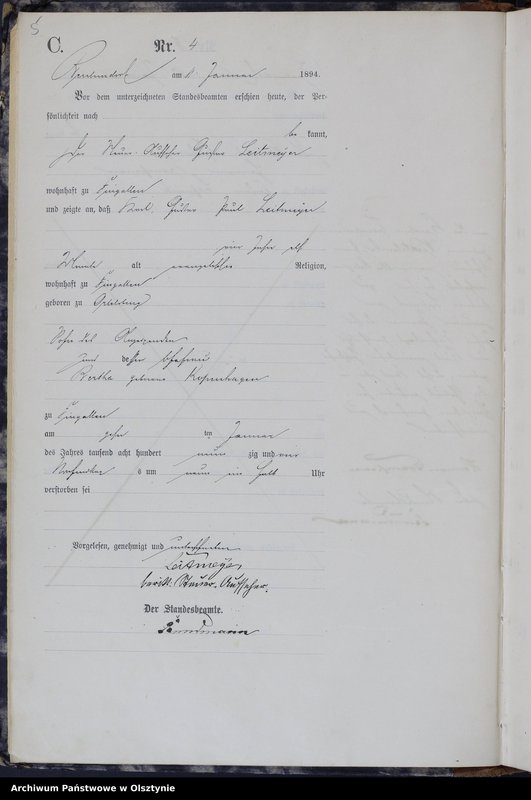 5
C.
Nr. 4
am 11. Januar 1894.
Vor dem unterzeichneten Standesbeamten erschien heute, der Per-
sönlichkeit nach
be kannt,
der Steuer-Aufseher Gustav Leitmeyer
wohnhaft zu
und zeigte an, daß Karl Gustav Paul Leitmeyer
vier Jahre elf
Monate alt evangelischer Religion,
wohnhaft zu
geboren zu
Sohn des Anzeigenden
und dessen Ehefrau
Bertha geborene Kopenhagen
zu
am zehn ten Januar
des Jahres tausend acht hundert neun zig und vier
Nachmittags um neun ein halb Uhr
verstorben sei
Vorgelesen, genehmigt und unterschrieben
Leitmeyer
beritt. Steuer-Aufseher.
Der Standesbeamte.
Archiwum Państwowe w Olsztynie